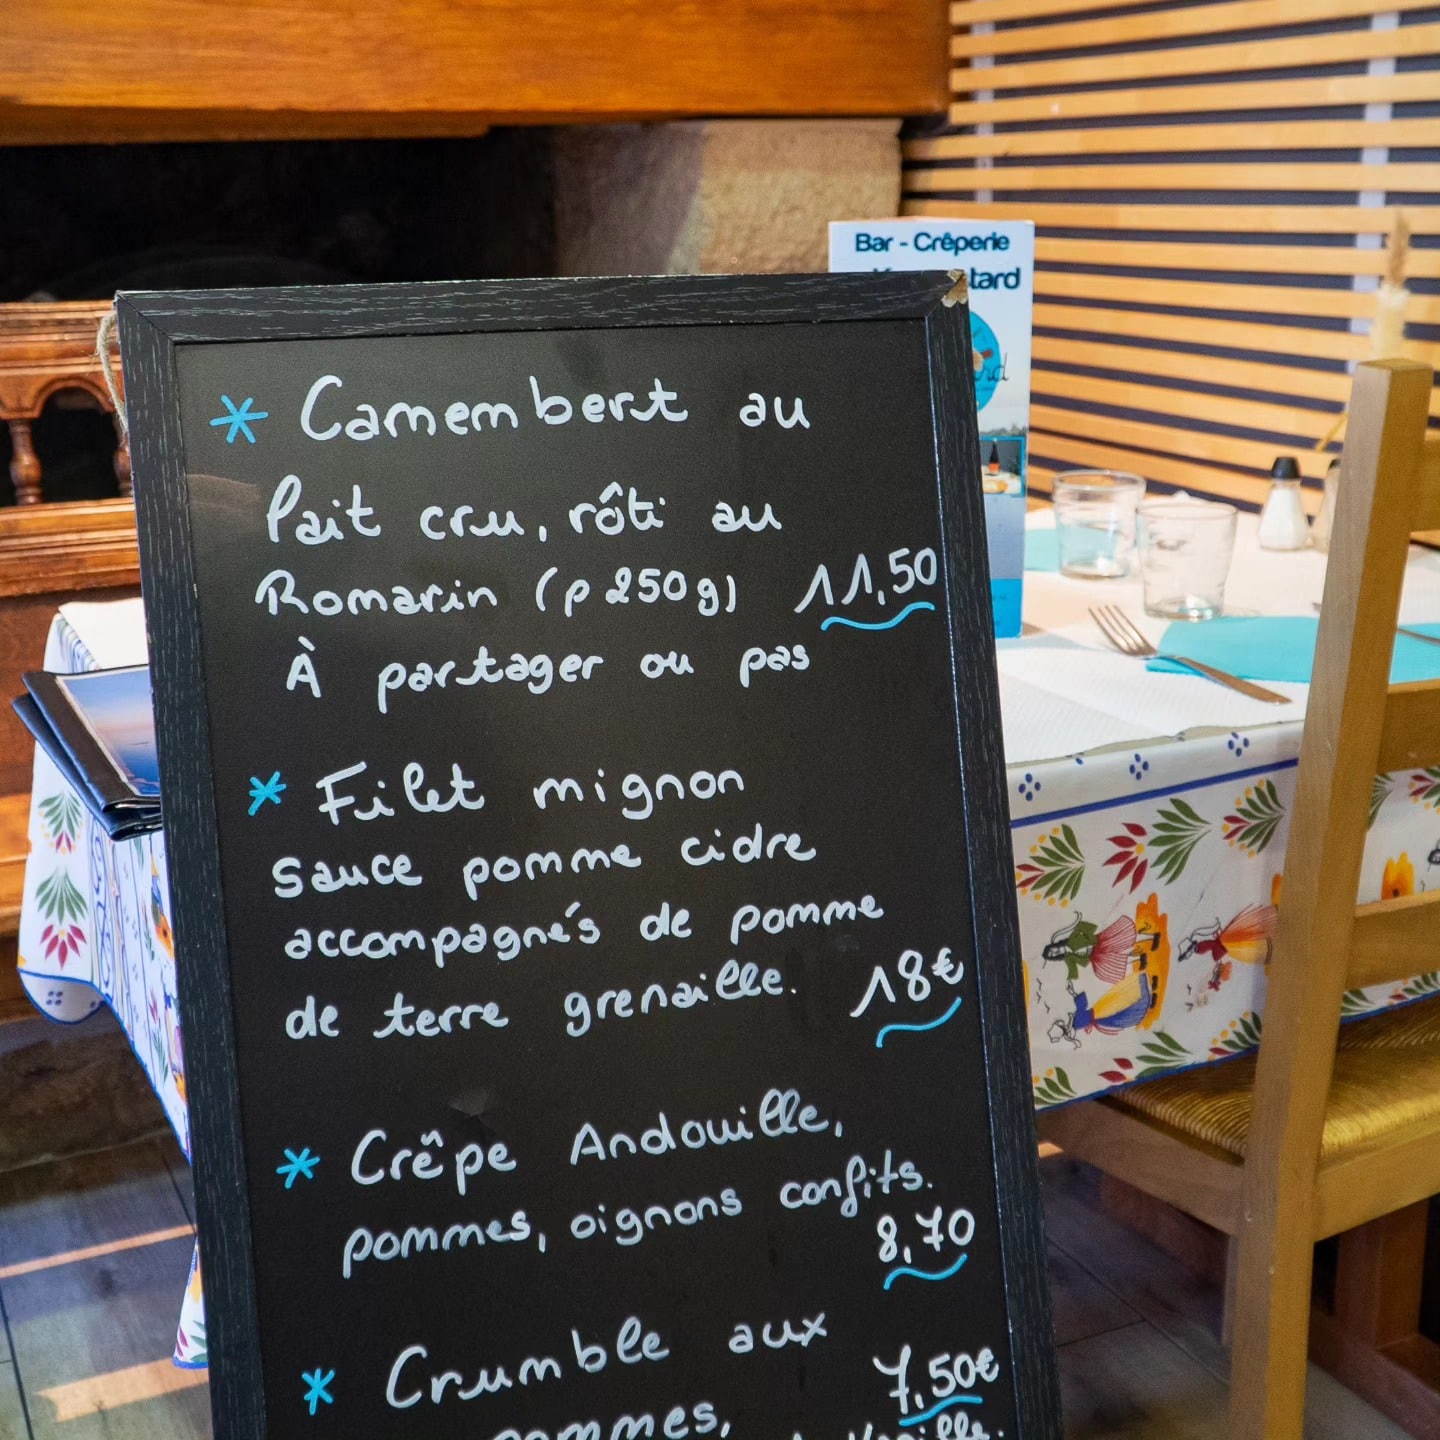 Bar - Crêperie
* Camembert au
lait cru, rôti au
Romarin (p 250g) 11,50
À partager ou pas
* Filet mignon
sauce pomme cidre
accompagnés de pomme
de terre grenaille. 18€
* Crêpe Andouille,
pommes, oignons confits.
8,70
* Crumble aux
7,50€
pommes,